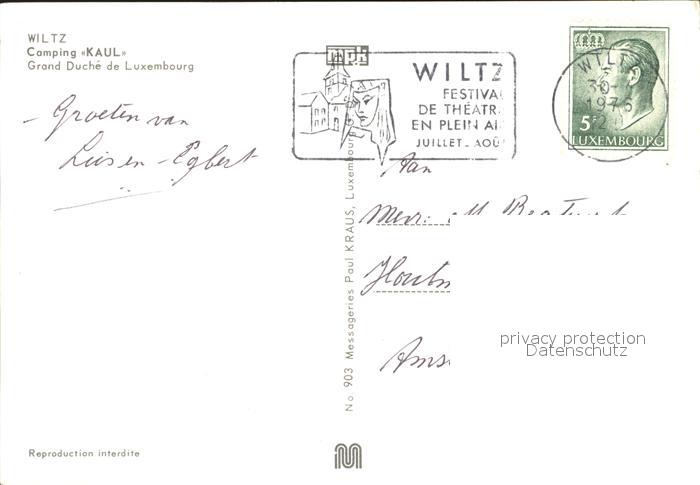 WILTZ
Camping «KAUL»
Grand Duché de Luxembourg
WILTZ
FESTIVA
DE THÉATR
EN PLEIN AI
JUILLET - AOÛ
WILTZ
30-
1976
5F
LUXEMBOURG
- Groeten van
Luis en Egbert
Aan
No. 903 Messageries Paul KRAUS, Luxembourg
privacy protection
Datenschutz
Reproduction interdite